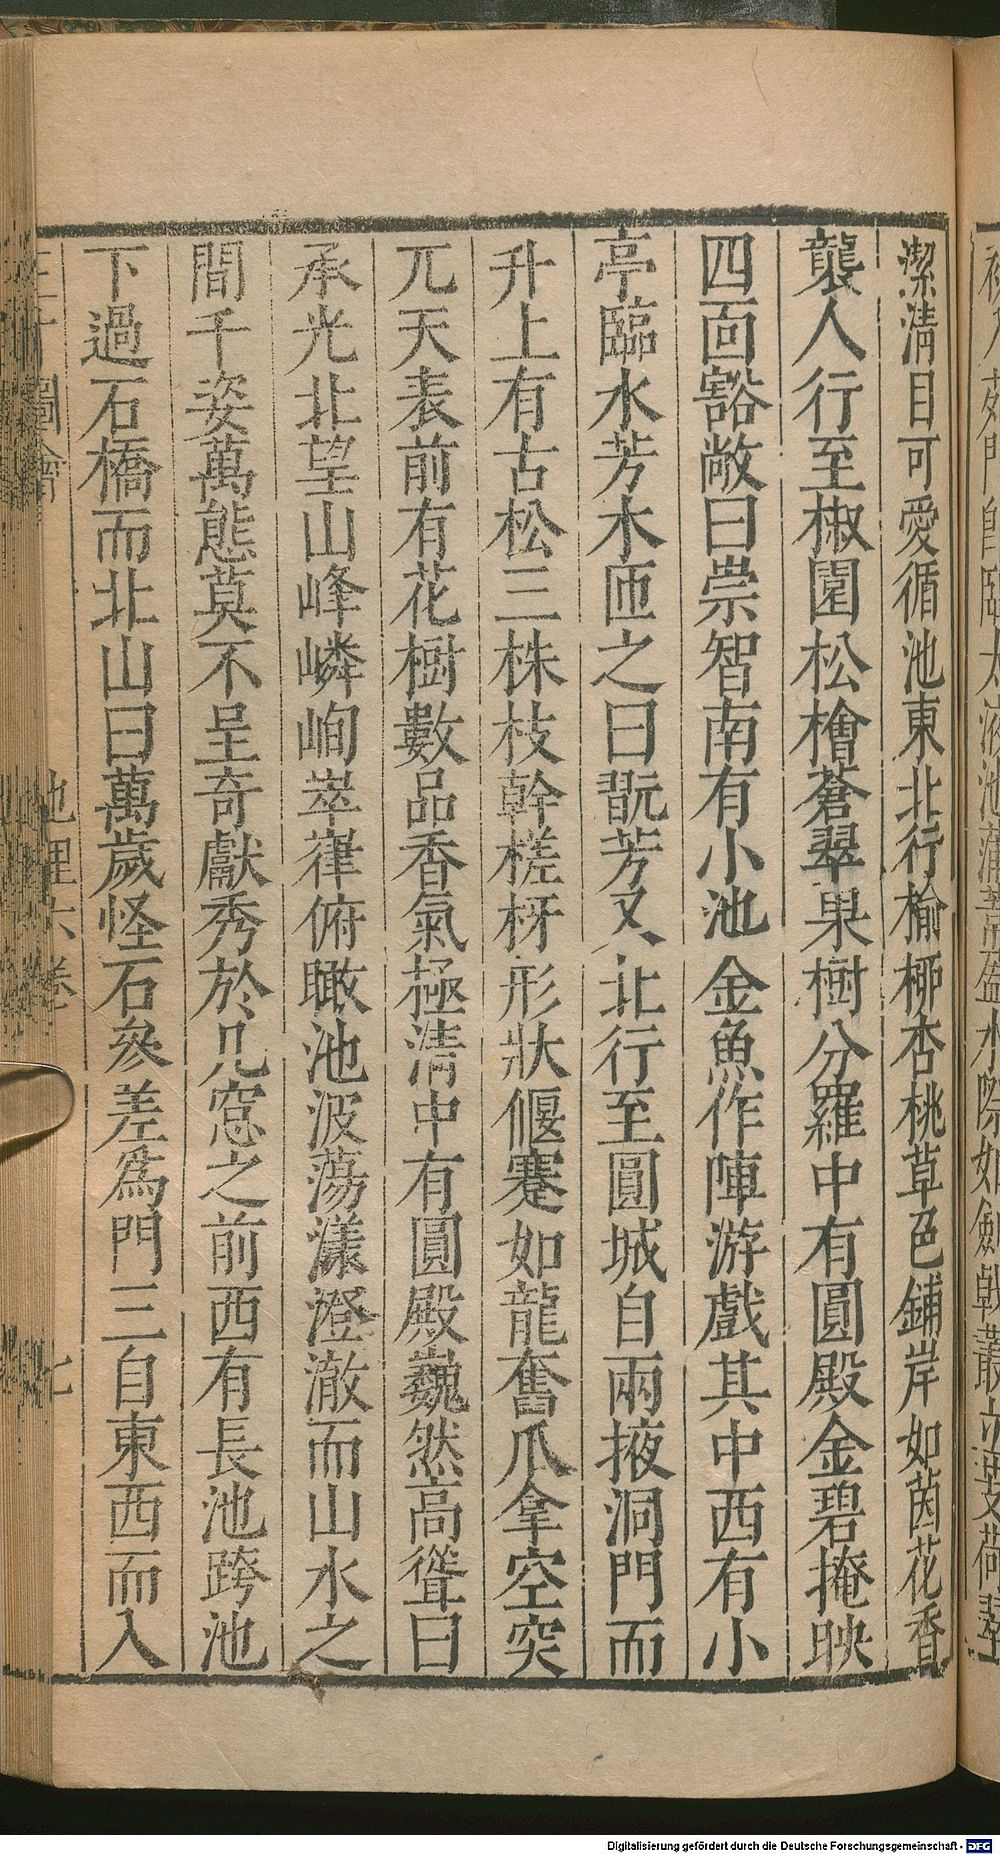 潔清目可愛循池東北行榆柳杏桃草色鋪岸如茵花香
襲人行至椒園松檜蒼翠果樹分羅中有圓殿金碧掩映
四面豁敞曰崇智南有小池金魚作陣游戲其中西有小
亭臨水芳木匝之曰翫芳又北行至圓城自兩掖洞門而
升上有古松三株枝幹槎枒形狀偃蹇如龍奮爪拿空突
兀天表前有花樹數品香氣極清中有圓殿巍然高聳曰
承光北望山峰嶙峋崒嵂俯瞰池波蕩漾澄澈而山水之
間千姿萬態莫不呈奇獻秀於几窓之前西有長池跨池
下過石橋而北山曰萬歲怪石參差為門三自東西而入
三才圖會 地理六卷 七
Digitalisierung gefördert durch die Deutsche Forschungsgemeinschaft - DFG